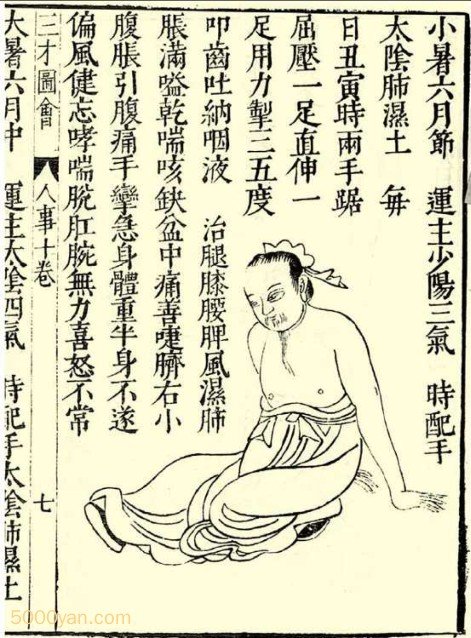 小暑六月節　運主少陽三氣　時配手
太陰肺濕土　每
日丑寅時兩手踞
屈壓一足直伸一
足用力掣三五度
叩齒吐納咽液　治腿膝腰脾風濕肺
脹滿嗌乾喘咳缺盆中痛善嚏臍右小
腹脹引腹痛手攣急身體重半身不遂
偏風健忘哮喘脫肛腕無力喜怒不常
三才圖會　人事十卷　七
大暑六月中　運主太陰四氣　時配手太陰肺濕土
5000yan.com